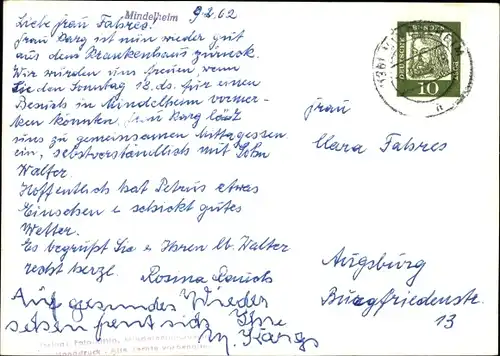 Mindelheim 9.2.62
Liebe Frau Fahres!
Frau Karg ist nun wieder gut
aus dem Krankenhaus zurück.
Wir würden uns freuen, wenn
Sie den Sonntag 18. ds. für einen
Besuch in Mindelheim vormer-
ken könnten. Frau Karg lädt
uns zu gemeinsamen Mittagessen
ein, selbstverständlich mit Sohn
Walter.
Hoffentlich hat Petrus etwas
Einsehen u schickt gutes
Wetter.
Es begrüßt Sie u Ihren lb. Walter
recht herzl.
Rosina
Auf gesundes Wieder
sehen freut sich Ihre
M. Karg
DEUTSCHE
POST
10
Frau
Clara Fahres
Augsburg
Burgfriedenstr.
13